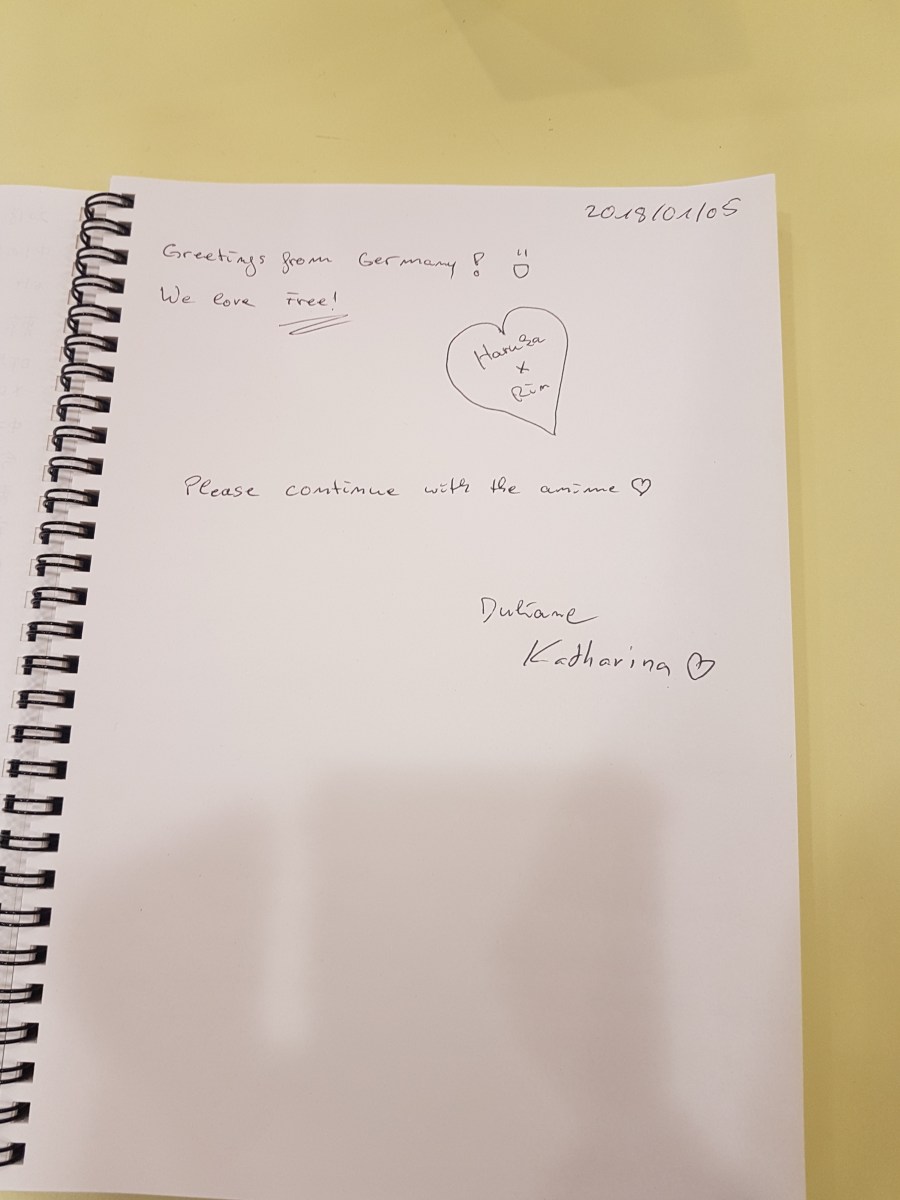 2018/01/05
Greetings from Germany!
We love Free!
Haruka
x
Rin
Please continue with the anime ♡
Juliane
Katharina ♡